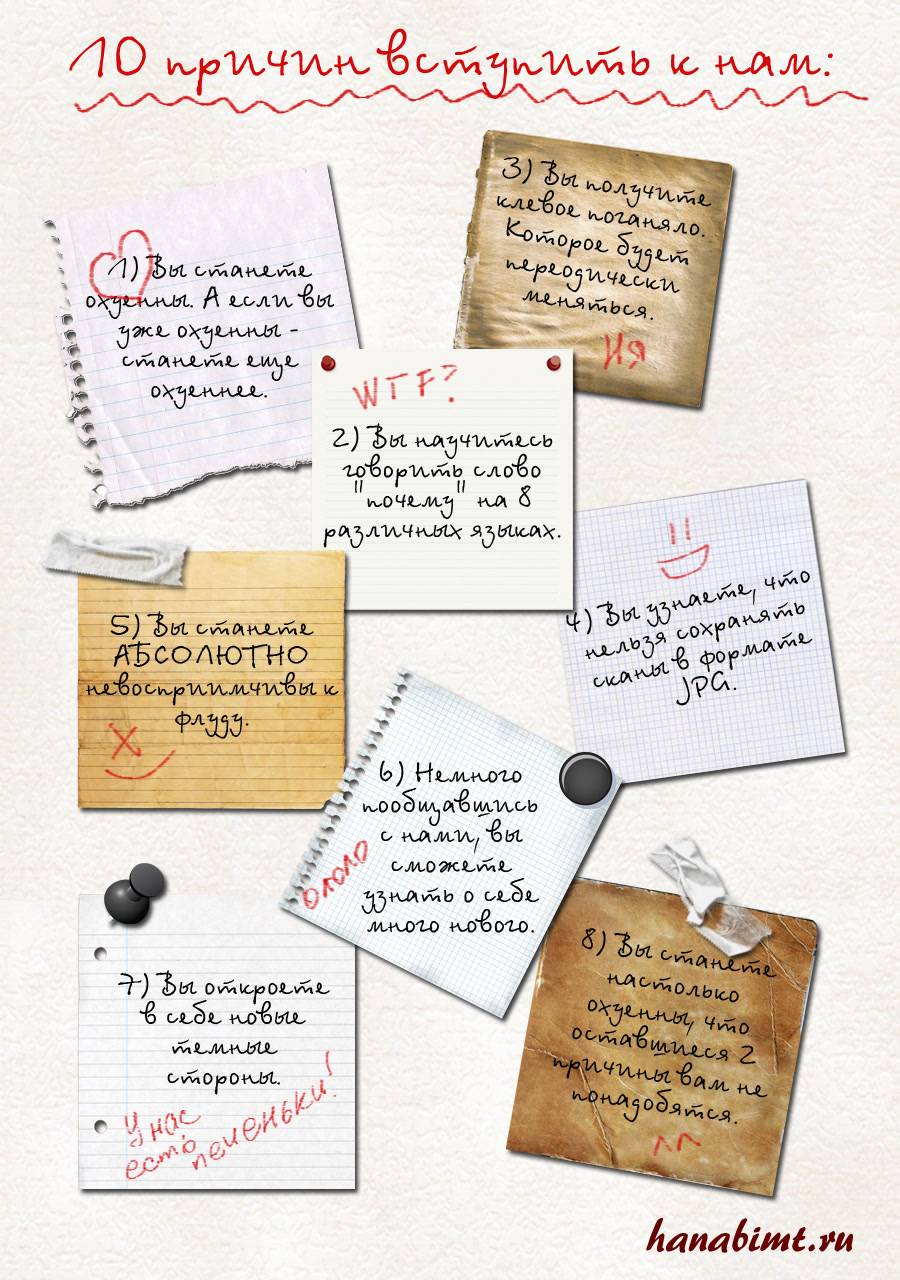 10 причин вступить к нам:
1) Вы станете
охуенны. А если вы
уже охуенны -
станете еще
охуеннее.
WTF?
2) Вы научитесь
говорить слово
"почему" на 8
различных языках.
3) Вы получите
клевое поганяло.
Которое будет
переодически
меняться.
ИЯ
4) Вы узнаете, что
нельзя сохранять
сканы в формате
JPG.
5) Вы станете
АБСОЛЮТНО
невосприимчивы к
флуду.
6) Немного
пообщавшись
с нами, вы
сможете
узнать о себе
много нового.
ололо
7) Вы откроете
в себе новые
темные
стороны.
У нас
есть печеньки!
8) Вы станете
настолько
охуенны, что
оставшиеся 2
причины вам не
понадобятся.
^^
hanabimt.ru